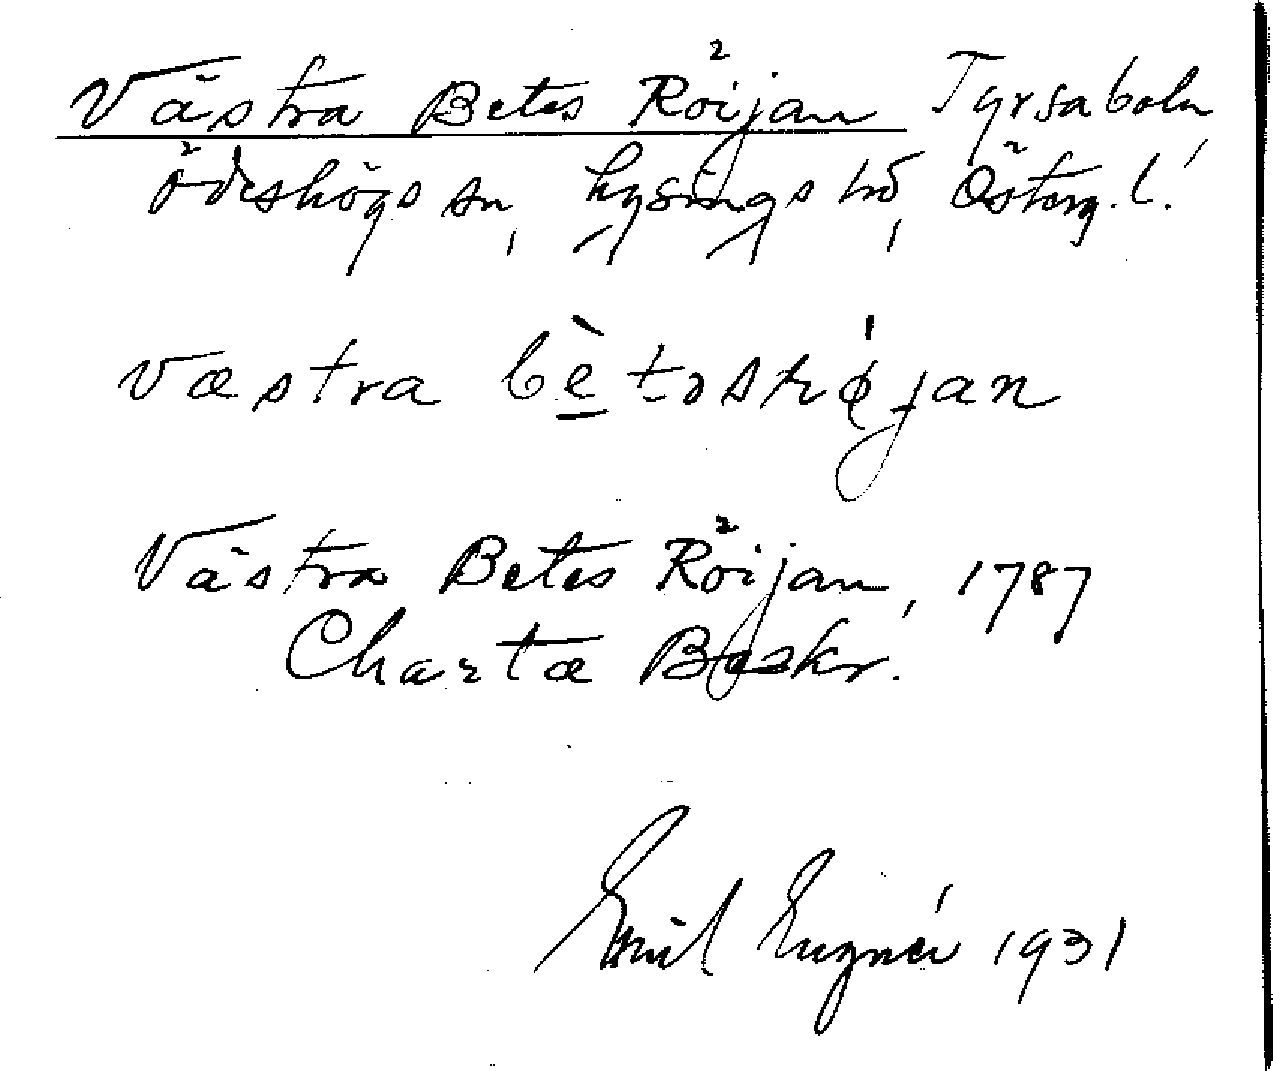 Västra Betes Röijan Tyrsabola,
Ödeshögs sn, Lysings hd, Österg. l.
væstra bètəsrø̨jan
Västra Betes Röijan, 1787
Charta Beskr.
Emil 1931